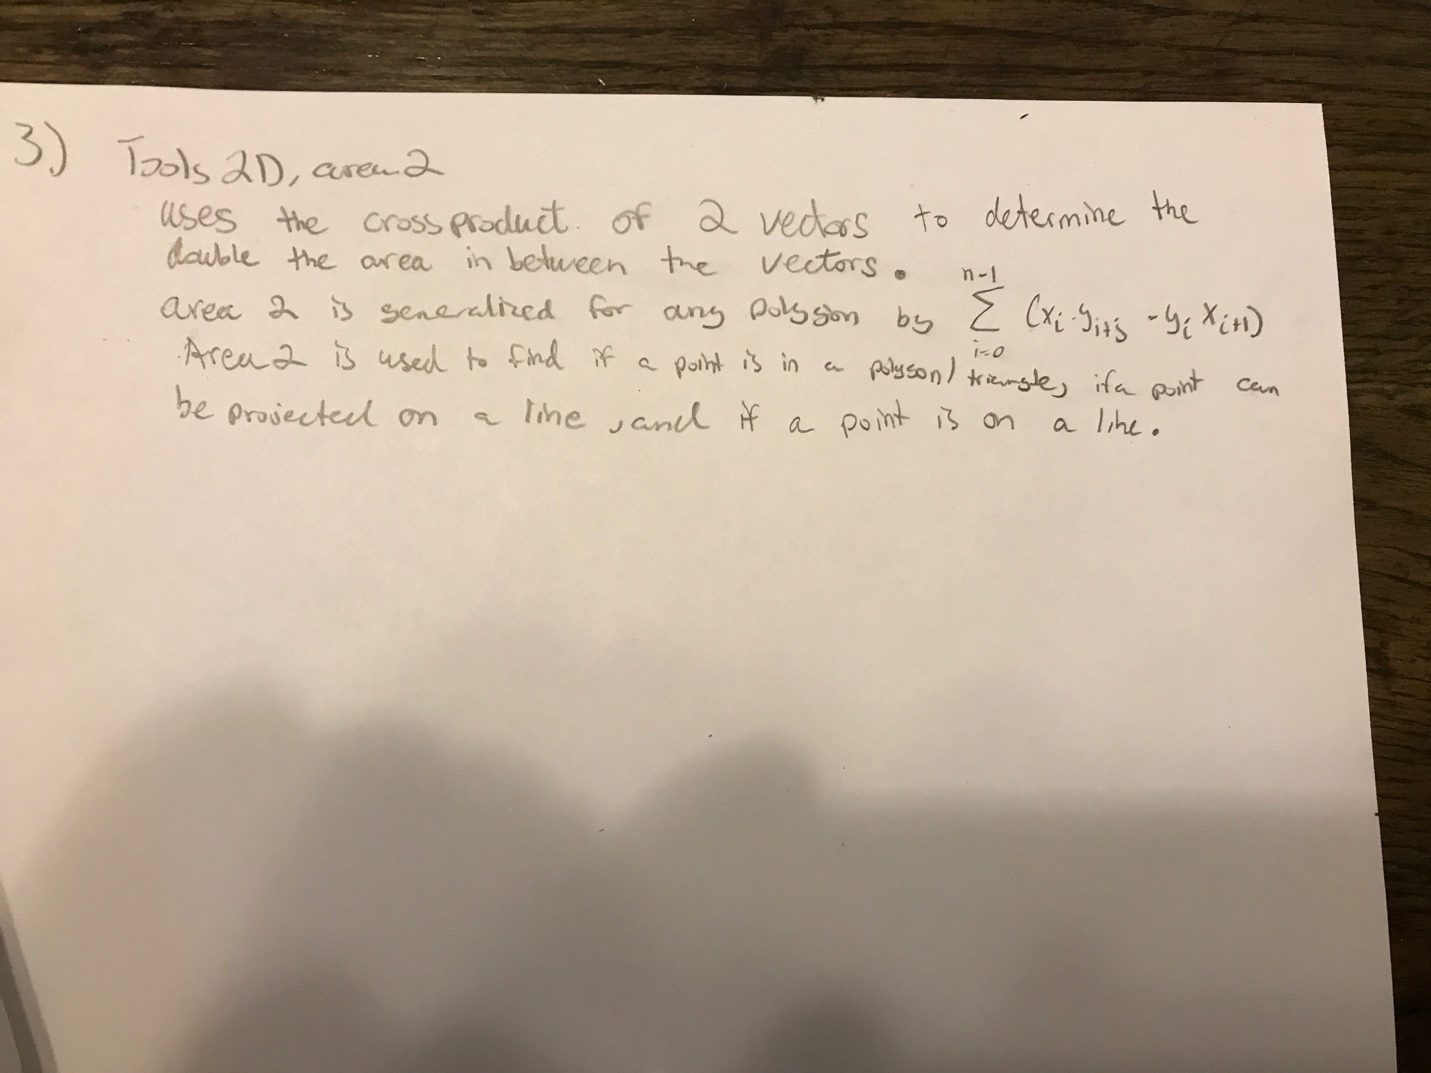 3) Tools 2D, area2
uses the cross product of 2 vectors to determine the
double the area in between the vectors.
area 2 is generalized for any polygon by \sum_{i=0}^{n-1} (x_i \cdot y_{i+j} - y_i x_{i+1})
Area 2 is used to find if a point is in a polygon/triangle, if a point can
be projected on a line, and if a point is on a line.